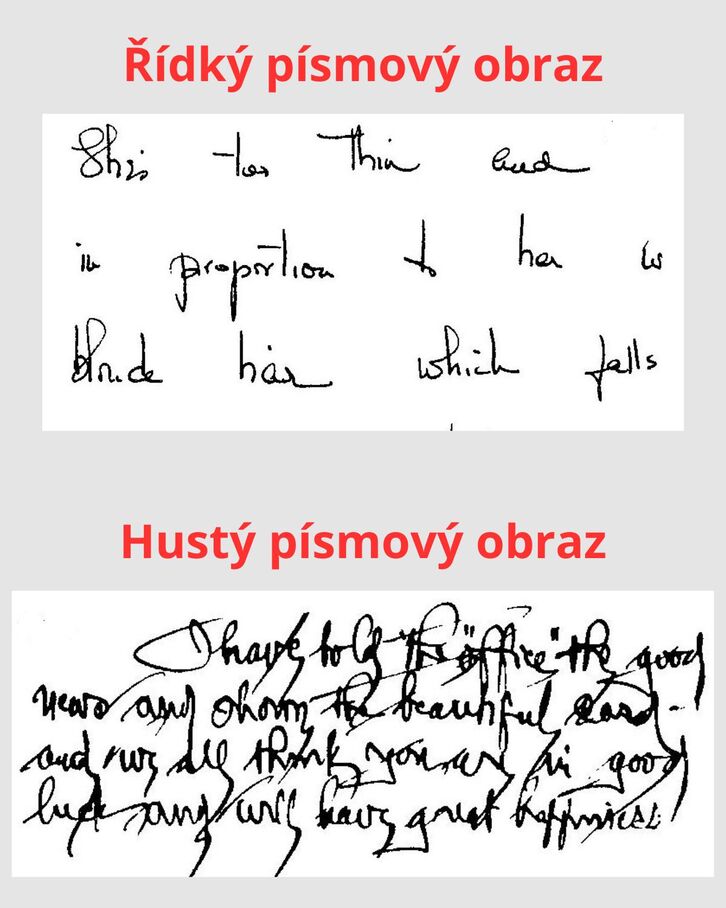 Řídký písmový obraz
She's too thin and
in proportion to her w
blonde hair which falls
Hustý písmový obraz
I have told the "office" the good
news and shown the beautiful card-
and we all think you are in good
luck and will have great happiness